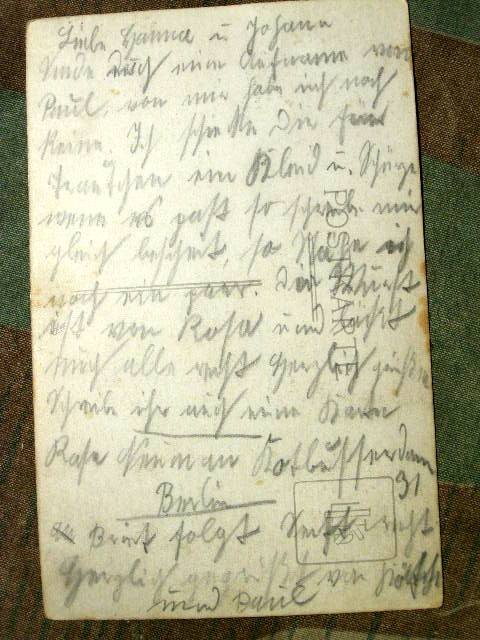 Liebe Hanna u Johann
Sende Euch eine Aufname von
Paul, von mir habe ich noch
keine. Ich schicke Dir für
Trautchen ein Kleid u. Schürze
wenn es past so schreibe mir
gleich bescheit, so habe ich
noch ein paar. Die Wurst
ist von Rosa und
Euch alle recht Herzlich grüßen
Schreibe ihr auch eine Karte
Rosa Neuman Kotbusserdamm
31
Berlin
Brief folgt Seid recht
Herzlich gegrüßt von
und Paul
POSTKARTE